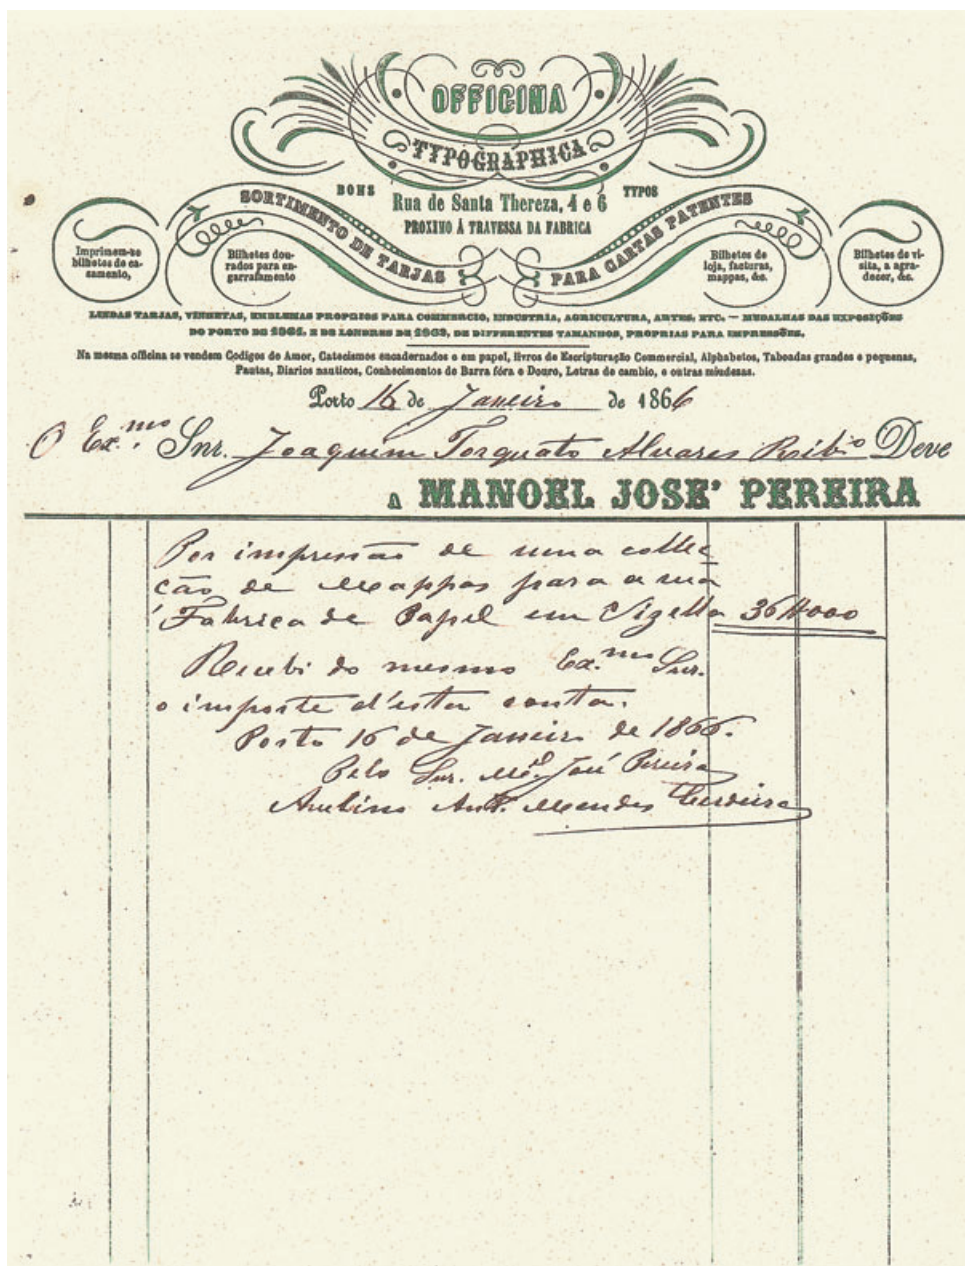 OFFICINA
TYPOGRAPHICA
BONS
TYPOS
Rua de Santa Thereza, 4 e 6
PROXIMO Á TRAVESSA DA FABRICA
SORTIMENTO DE TARJAS
PARA CARTAS PATENTES
Imprimem-se
bilhetes de ca-
samento,
Bilhetes dou-
rados para en-
garrafamento
Bilhetes de
loja, facturas,
mappas, &c.
Bilhetes de vi-
sita, a agra-
decer, &c.
LINDAS TARJAS, VINHETAS, EMBLEMAS PROPRIOS PARA COMMERCIO, INDUSTRIA, AGRICULTURA, ARTES, ETC. — MEDALHAS DAS EXPOSIÇÕES
DO PORTO DE 1861, E DE LONDRES DE 1862, DE DIFFERENTES TAMANHOS, PROPRIAS PARA IMPRESSÕES.
Na mesma officina se vendem Codigos de Amor, Catecismos encadernados e em papel, livros de Escripturação Commercial, Alphabetos, Taboadas grandes e pequenas,
Pautas, Diarios nauticos, Conhecimentos de Barra fóra e Douro, Letras de cambio, e outras miudezas.
Porto 16 de Janeiro de 1866
O Ex.mo Snr. Joaquim Torquato Alvares Ribº Deve
A MANOEL JOSE' PEREIRA
Por impressão de uma colle
ção de Mappas para a sua
Fabrica de Papel em Vizella 36$000
Recebi do mesmo Ex.mo Snr.
o importe d'esta conta.
Porto 16 de Janeiro de 1866.
Pelo Snr. Mel José Pereira
Ant.º Mendes